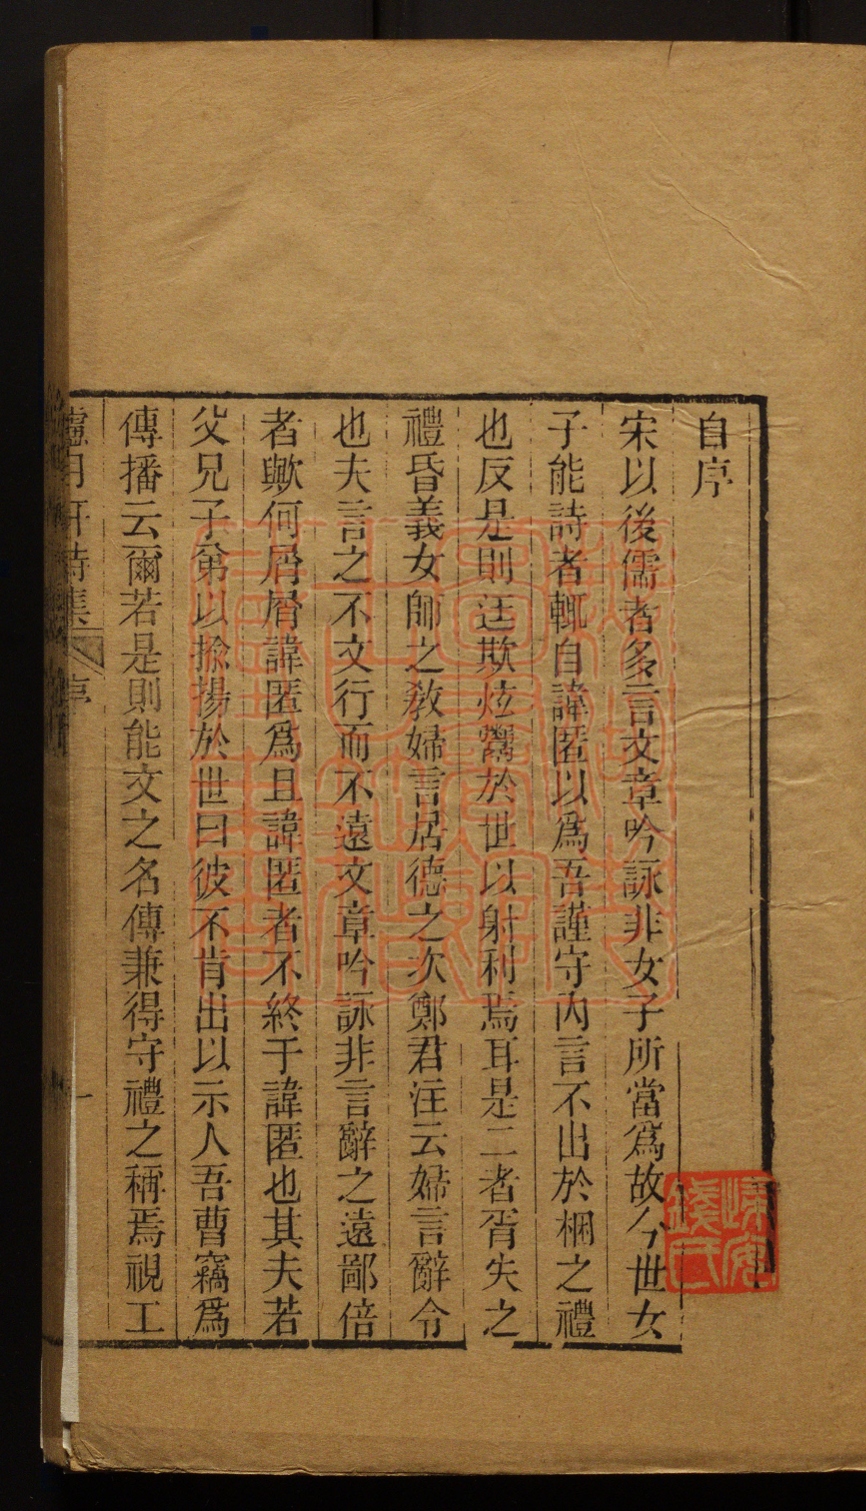 自序
宋以後儒者多言文章吟詠非女子所當為故今世女
子能詩者輒自諱匿以為吾謹守內言不出於梱之禮
也反是則迋欺炫鬻於世以射利焉耳是二者胥失之
禮昏義女師之敎婦言居德之次鄭君注云婦言辭令
也夫言之不文行而不遠文章吟詠非言辭之遠鄙倍
者歟何屑屑諱匿爲且諱匿者不終于諱匿也其夫若
父兄子弟以揄揚於世曰彼不肯出以示人吾曹竊爲
傳播云爾若是則能文之名傳兼得守禮之稱焉視工
月軒詩集 序 一